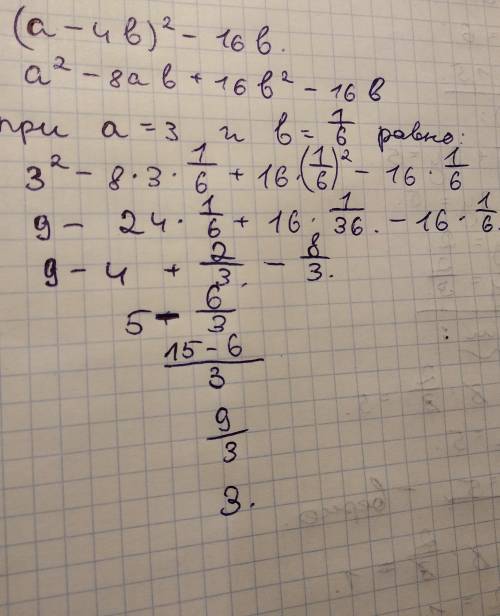 (a - 4b)² - 16b.
a² - 8ab + 16b² - 16b
при a = 3 и b = 1/6 равно:
3² - 8·3·1/6 + 16·(1/6)² - 16·1/6
9 - 24·1/6 + 16·1/36. - 16·1/6.
9 - 4 + 2/3. - 8/3.
5 - 6/3
15-6/3
9/3
3.